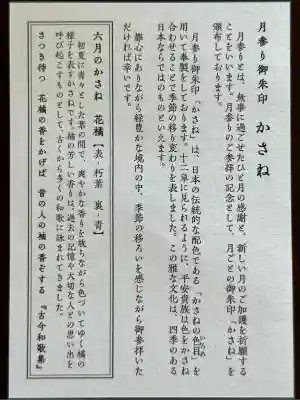 月参り御朱印 かさね
月参りとは、無事に過ごせたひと月の感謝と、新しい月のご加護を祈願する
ことをいいます。月参りのご参拝の記念として、月ごとの御朱印「かさね」を
頒布しております。
月参り御朱印「かさね」は、日本の伝統的な配色である「かさねの色目」を
いろめ
用いて奉製をしております。十二単に見られるように、平安貴族は色をかさね
合わせることで季節の移り変わりを表しました。この雅な文化は、四季のある
日本ならではのものといえます。
都心にありながら緑豊かな境内の中、季節の移ろいを感じながら御参拝いた
だければ幸いです。
六月のかさね 花橘【表・朽葉 裏・青】
初夏に青々とした葉の間で、爽やかな香りを放ちながら色づいてゆく橘の
様子を表すかさねです。橘の芳しい香りは、過去の記憶や大切な人との思い出を
呼び起こすものとして、古くから多くの和歌に詠まれてきました。
さつき待つ 花橘の香をかげば 昔の人の袖の香ぞする 『古今和歌集』